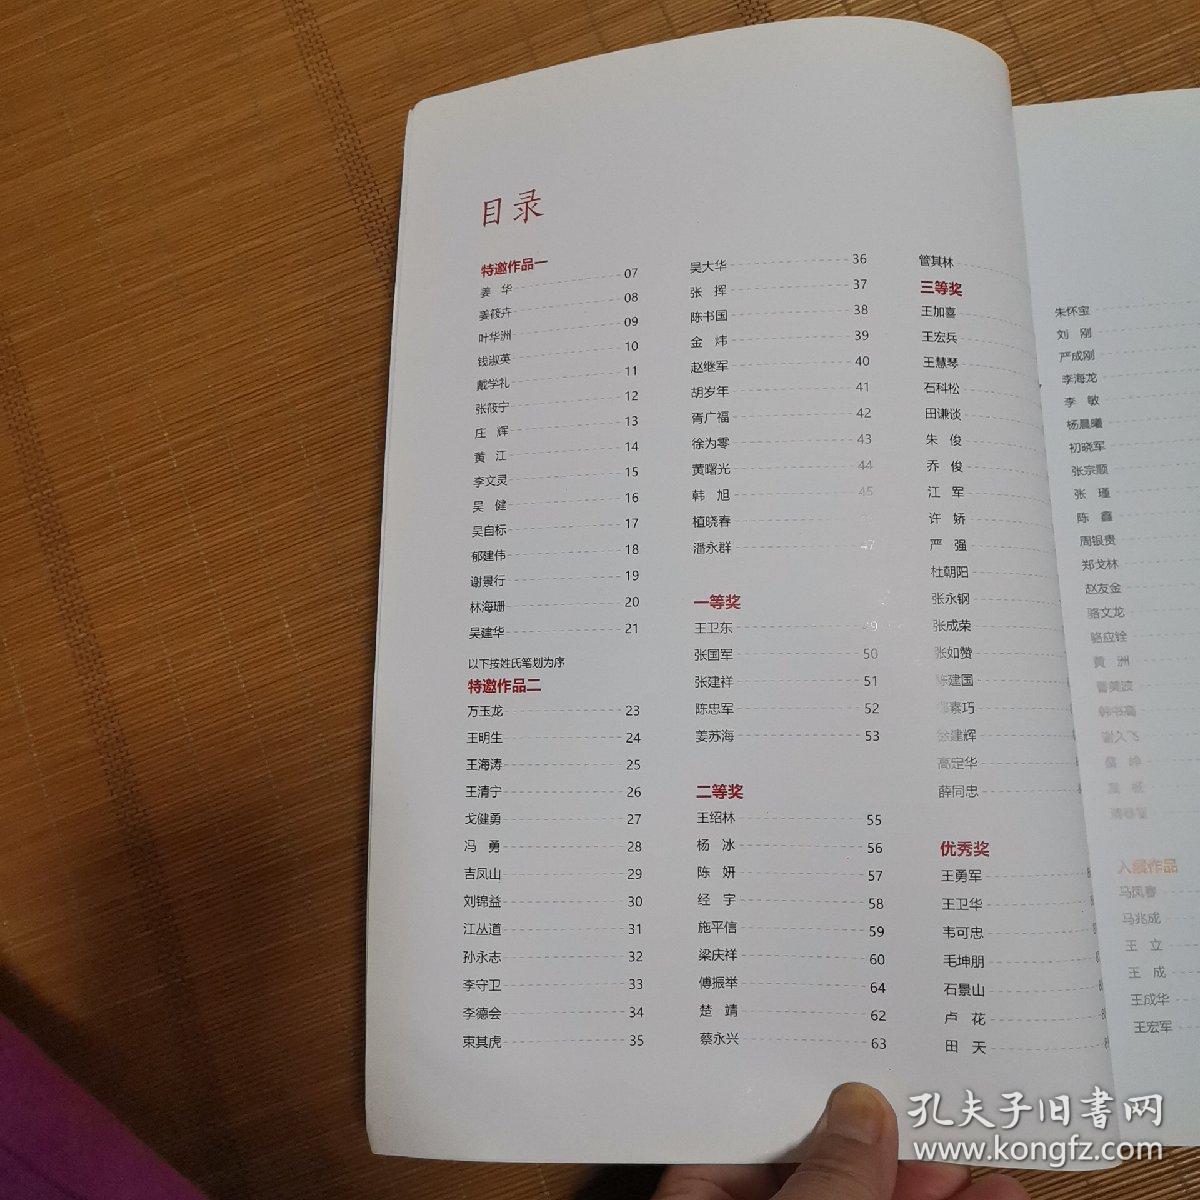 目录
特邀作品一
姜 华 07
姜筱卉 08
叶华洲 09
钱淑英 10
戴学礼 11
张筱宁 12
庄 辉 13
黄 江 14
李文灵 15
吴 健 16
吴自标 17
郁建伟 18
谢景行 19
林海珊 20
吴建华 21
以下按姓氏笔划为序
特邀作品二
万玉龙 23
王明生 24
王海涛 25
王清宁 26
戈健勇 27
冯 勇 28
吉凤山 29
刘锦益 30
江丛道 31
孙永志 32
李守卫 33
李德会 34
束其虎 35
吴大华 36
张 挥 37
陈书国 38
金 炜 39
赵继军 40
胡岁年 41
胥广福 42
徐为零 43
黄曙光 44
韩 旭 45
植晓春
潘永群 47
一等奖
王卫东 49
张国军 50
张建祥 51
陈忠军 52
姜苏海 53
二等奖
王绍林 55
杨 冰 56
陈 妍 57
经 宇 58
施平信 59
梁庆祥 60
傅振举 64
楚 靖 62
蔡永兴 63
管其林
三等奖
王加喜
王宏兵
王慧琴
石科松
田谦谈
朱 俊
乔 俊
江 军
许 娇
严 强
杜朝阳
张永钢
张成荣
张如赞
陈建国
素巧
徐建辉
高定华
薛同忠
优秀奖
王勇军
王卫华
韦可忠
毛坤朋
石景山
卢 花
田 天
朱怀宝
刘 刚
严成刚
李海龙
李 敏
杨晨曦
初晓军
张宗顺
张 瑾
陈 鑫
周银贵
郑戈林
赵友金
骆文龙
骆应铨
黄 洲
曹美波
韩书高
入展作品
马凤春
马兆成
王 立
王 成
王成华
王宏军
孔夫子旧书网
www.kongfz.com